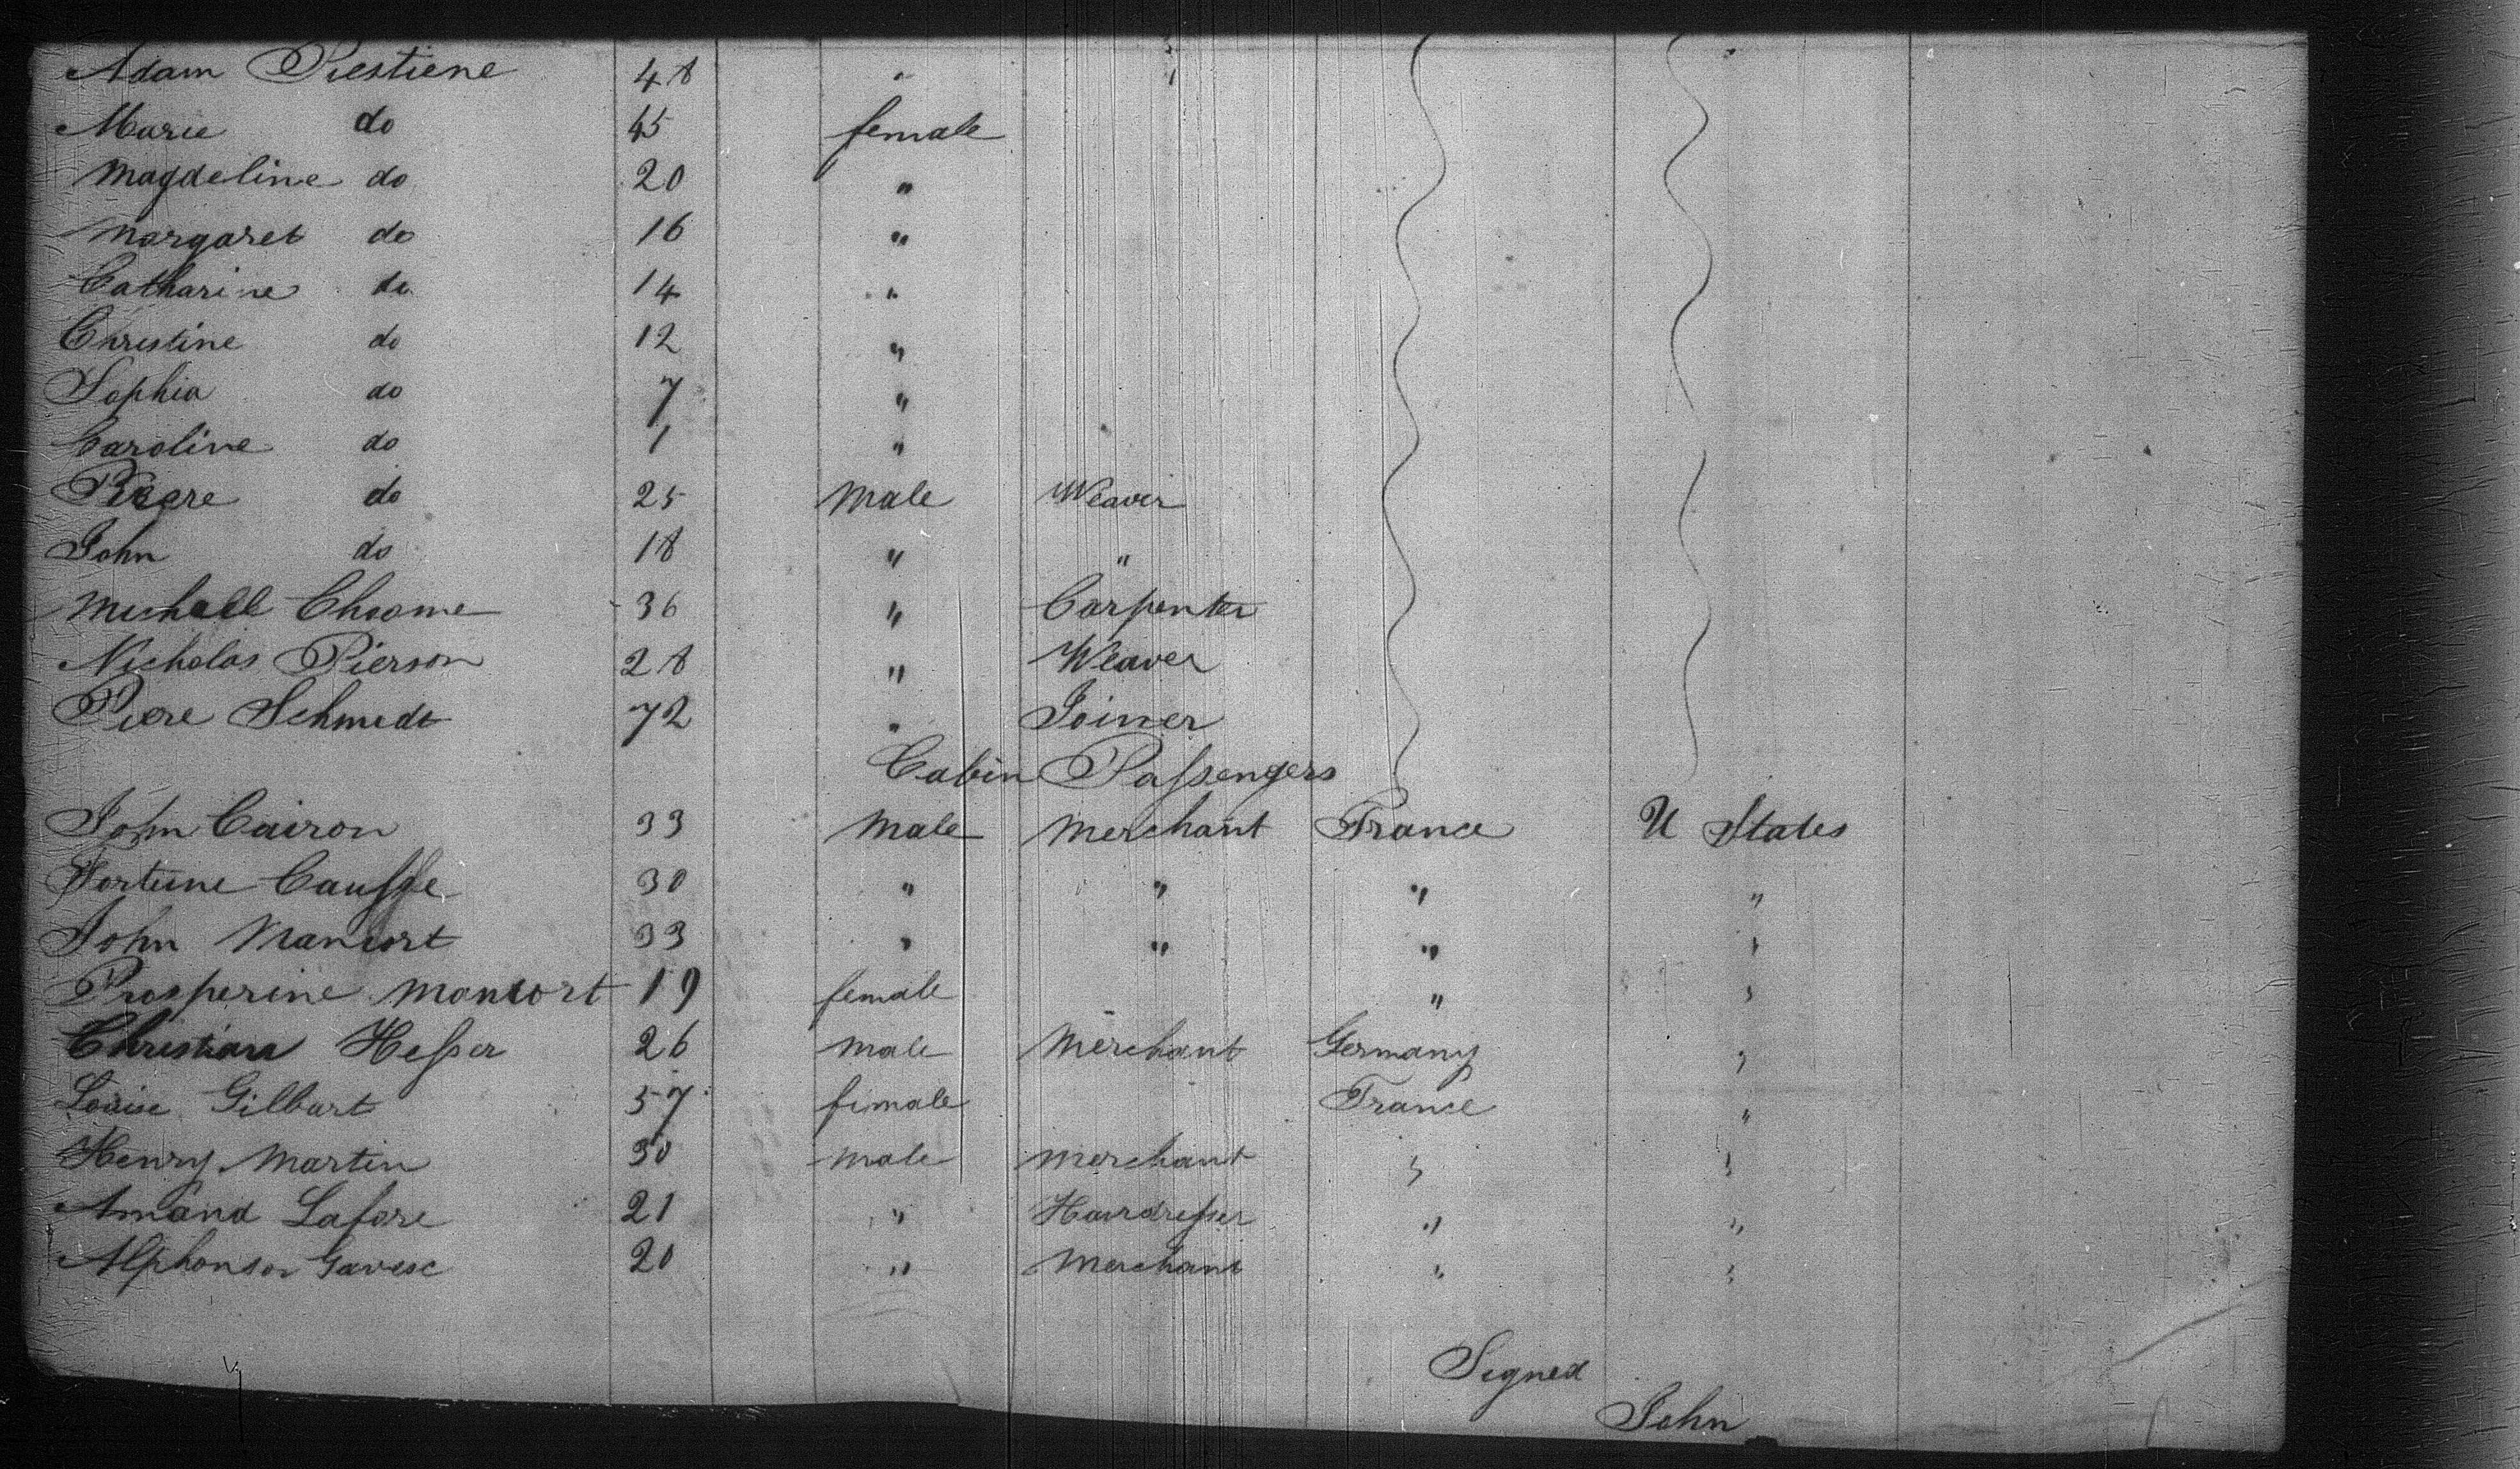 Adam Piestiene 48 " "
Marie do 45 female
Magdeline do 20 "
Margaret do 16 "
Catharine do 14 "
Christine do 12 "
Sophia do 7 "
Caroline do 1 "
Piere do 25 Male Weaver
John do 18 " "
Michell Choome 36 " Carpenter
Nicholas Pierson 28 " Weaver
Piere Schmidt 72 " Joiner
Cabin Passengers
John Cairon 33 Male Merchant France U States
Fortune Causse 30 " " " "
John Mancort 33 " " " "
Prosperine Mancort 19 female " "
Christian Hesser 26 Male Merchant Germany "
Louise Gilbart 57 female France "
Henry Martin 30 Male Merchant " "
Amand Lafore 21 " Hairdresser " "
Alphonson Gavesc 20 " Merchant " "
Signed
John